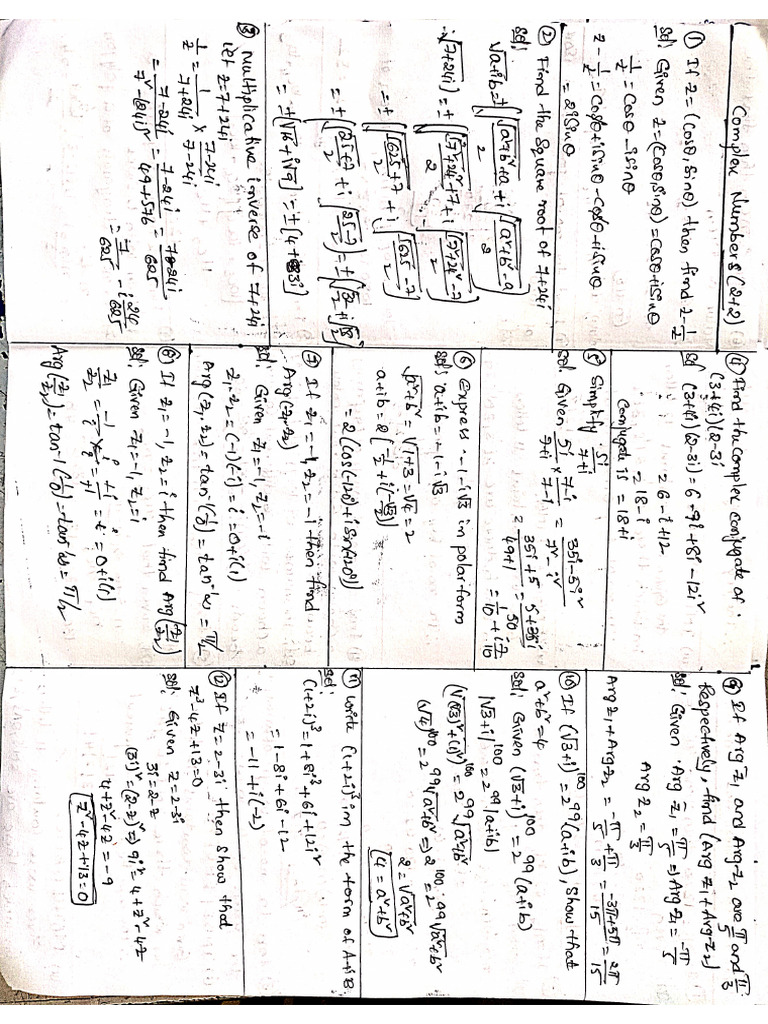 Complex Numbers (2+2)
① If z = (cosθ, sinθ) then find z - 1/z
sol: Given z = (cosθ, sinθ) = cosθ + isinθ
1/z = cosθ - isinθ
z - 1/z = cosθ + isinθ - cosθ + isinθ
= 2isinθ
② Find the square root of 7+24i
sol:
√a+ib = ± [√(√a²+b²+a)/2 + i √(√a²+b²-a)/2]
∴ √7+24i = ± [√(√7²+24²+7)/2 + i √(√7²+24²-7)/2]
= ± [√(√625+7)/2 + i √(√625-7)/2]
= ± [√(25+7)/2 + i √(25-7)/2] = ± [√32/2 + i√18/2]
= ± [√16 + i√9] = ± [4+3i]
③ Multiplicative inverse of 7+24i
let z = 7+24i
1/z = 1/7+24i × 7-24i/7-24i
= 7-24i/7²-(24i)² = 7-24i/49+576 = 7-24i/625
= 7/625 - i 24/625
④ Find the complex conjugate of
(3+4i)(2-3i)
sol (3+4i)(2-3i) = 6-9i+8i-12i²
= 6-i+12
= 18-i
Conjugate is = 18+i
⑤ Simplify 5i/7+i
sol: Given 5i/7+i × 7-i/7-i = 35i-5i²/7²-i²
= 35i+5/49+1 = 5+35i/50 = 1/10 + i 7/10
⑥ Express -1-i√3 in polar form
sol: a+ib = -1-i√3
√a²+b² = √1+3 = √4 = 2
a+ib = 2(-1/2 + i(-√3/2))
= 2(cos(-120) + i sin(-120°))
⑦ If z₁ = -1, z₂ = -i then find
Arg(z₁z₂)
sol: Given z₁ = -1, z₂ = -i
z₁·z₂ = (-1)(-i) = i = 0+i(1)
Arg(z₁z₂) = tan⁻¹(1/0) = tan⁻¹∞ = π/2
⑧ If z₁ = -1, z₂ = i then find Arg(z₁/z₂)
sol: Given z₁ = -1, z₂ = i
z₁/z₂ = -1/i × i/i = -i/-1 = i = 0+i(1)
Arg(z₁/z₂) = tan⁻¹(1/0) = tan⁻¹∞ = π/2
⑨ If Arg z̄₁ and Arg z₂ are π/5 and π/3
Respectively, find (Arg z₁ + Arg z₂)
sol: Given Arg z̄₁ = π/5 ⇒ Arg z₁ = -π/5
Arg z₂ = π/3
Arg z₁ + Arg z₂ = -π/5 + π/3 = -3π+5π/15 = 2π/15
⑩ If (√3+i)¹⁰⁰ = 2⁹⁹(a+ib), show that
a²+b² = 4
sol: Given (√3+i)¹⁰⁰ = 2⁹⁹(a+ib)
|√3+i|¹⁰⁰ = 2⁹⁹|a+ib|
(√(√3)²+(1)²)¹⁰⁰ = 2⁹⁹√a²+b²
(√4)¹⁰⁰ = 2⁹⁹√a²+b² ⇒ 2¹⁰⁰ = 2⁹⁹√a²+b²
2 = √a²+b²
4 = a²+b²
⑪ Write (1+2i)³ in the form of A+iB
sol:
(1+2i)³ = 1+8i³+6i+12i²
= 1-8i+6i-12
= -11+i(-2)
⑫ If z = 2-3i then show that
z²-4z+13=0
sol: Given z = 2-3i
3i = 2-z
(3i)² = (2-z)² ⇒ 9i² = 4+z²-4z
4+z²-4z = -9
z²-4z+13=0